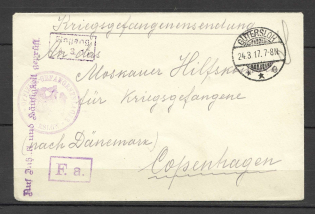 Kriegsgefangenensendung
GÜTERSLOH
24.3.17.7-8N.
An das
Moskauer Hilfskom
für Kriegsgefangene
(nach Dänemark)
Copenhagen
F. a.
Auf Inhalt und Zulässigkeit geprüft.